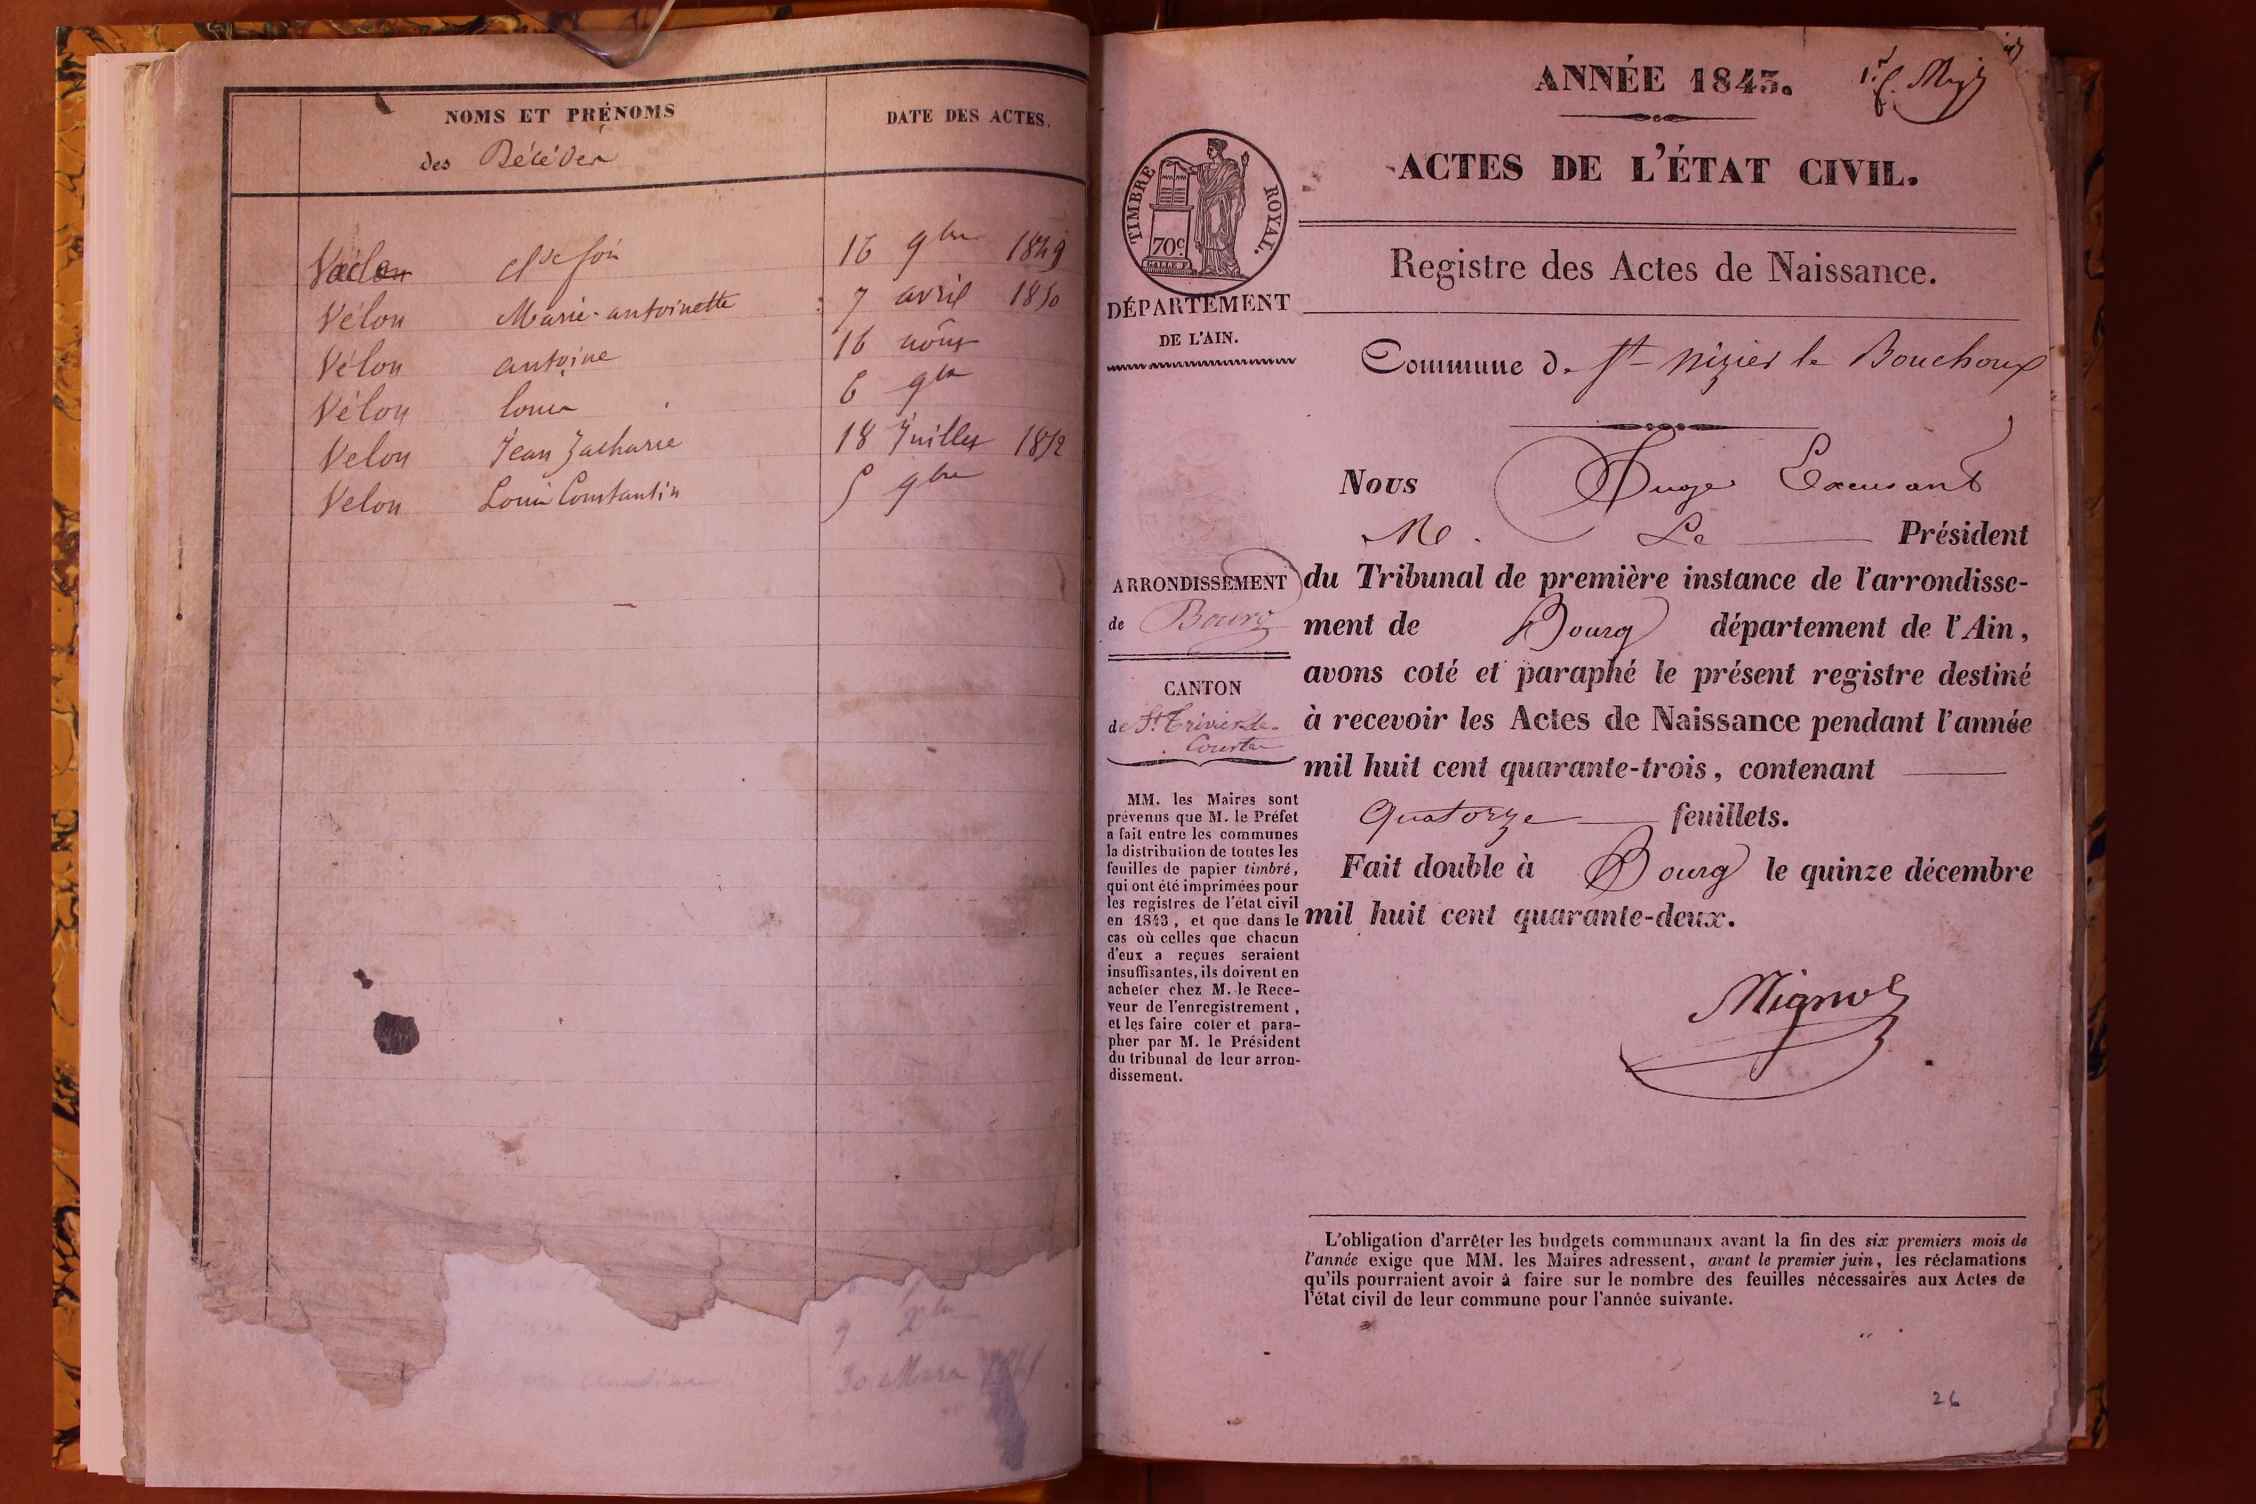 NOMS ET PRÉNOMS
des Décédés
DATE DES ACTES.
16 9bre 1849
Vélon Marie-antoinette 7 avril 1850
Vélon antoine 16 août
Vélon Louis 6 9bre
Velon Jean Zacharie 18 Juillet 1852
Velon Louis Constantin 5 9bre
9 Xbre
30 Mars
ANNÉE 1843.
ACTES DE L'ÉTAT CIVIL.
TIMBRE ROYAL.
70c
DÉPARTEMENT
DE L'AIN.
Registre des Actes de Naissance.
Commune de St nizier le Bouchoux
Nous Juge
Me. Le Président
du Tribunal de première instance de l'arrondisse-
ment de Bourg département de l'Ain,
avons coté et paraphé le présent registre destiné
à recevoir les Actes de Naissance pendant l'année
mil huit cent quarante-trois, contenant
quatorze feuillets.
Fait double à Bourg le quinze décembre
mil huit cent quarante-deux.
ARRONDISSEMENT
de Bourg
CANTON
de St Trivier de
Courtes
MM. les Maires sont
prévenus que M. le Préfet
a fait entre les communes
la distribution de toutes les
feuilles de papier timbré,
qui ont été imprimées pour
les registres de l'état civil
en 1843, et que dans le
cas où celles que chacun
d'eux a reçues seraient
insuffisantes, ils doivent en
acheter chez M. le Rece-
veur de l'enregistrement,
et les faire coter et para-
pher par M. le Président
du tribunal de leur arron-
dissement.
L'obligation d'arrêter les budgets communaux avant la fin des six premiers mois de
l'année exige que MM. les Maires adressent, avant le premier juin, les réclamations
qu'ils pourraient avoir à faire sur le nombre des feuilles nécessaires aux Actes de
l'état civil de leur commune pour l'année suivante.
26